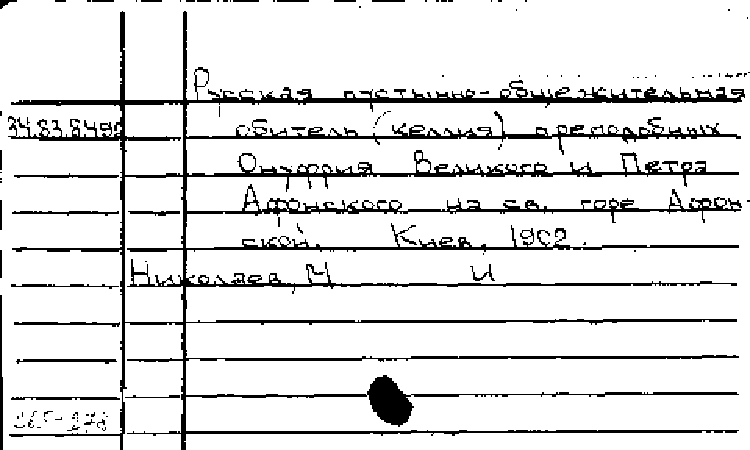 Русская пустынно-общежительная
34.83.8492 обитель (келлия) преподобных
Онуфрия Великого и Петра
Афонского на св. горе Афон-
ской. Киев, 1902.
Николаев, М И